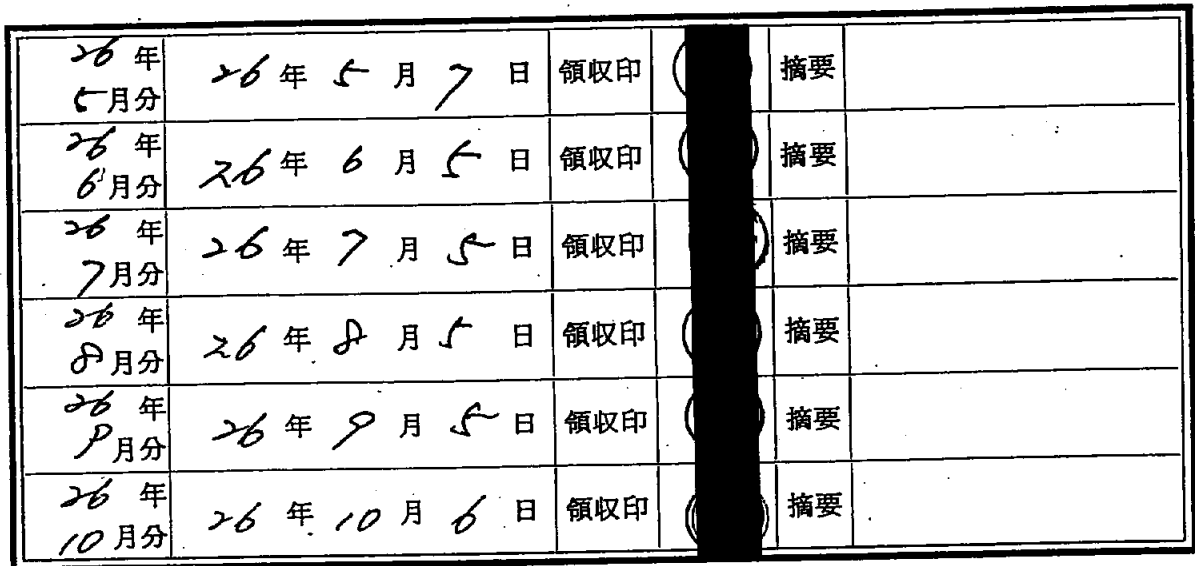 26 年
5月分 26 年 5 月 7 日 領収印 摘要
26 年
6月分 26 年 6 月 5 日 領収印 摘要
26 年
7月分 26 年 7 月 5 日 領収印 摘要
26 年
8月分 26 年 8 月 5 日 領収印 摘要
26 年
9月分 26 年 9 月 5 日 領収印 摘要
26 年
10月分 26 年 10 月 6 日 領収印 摘要